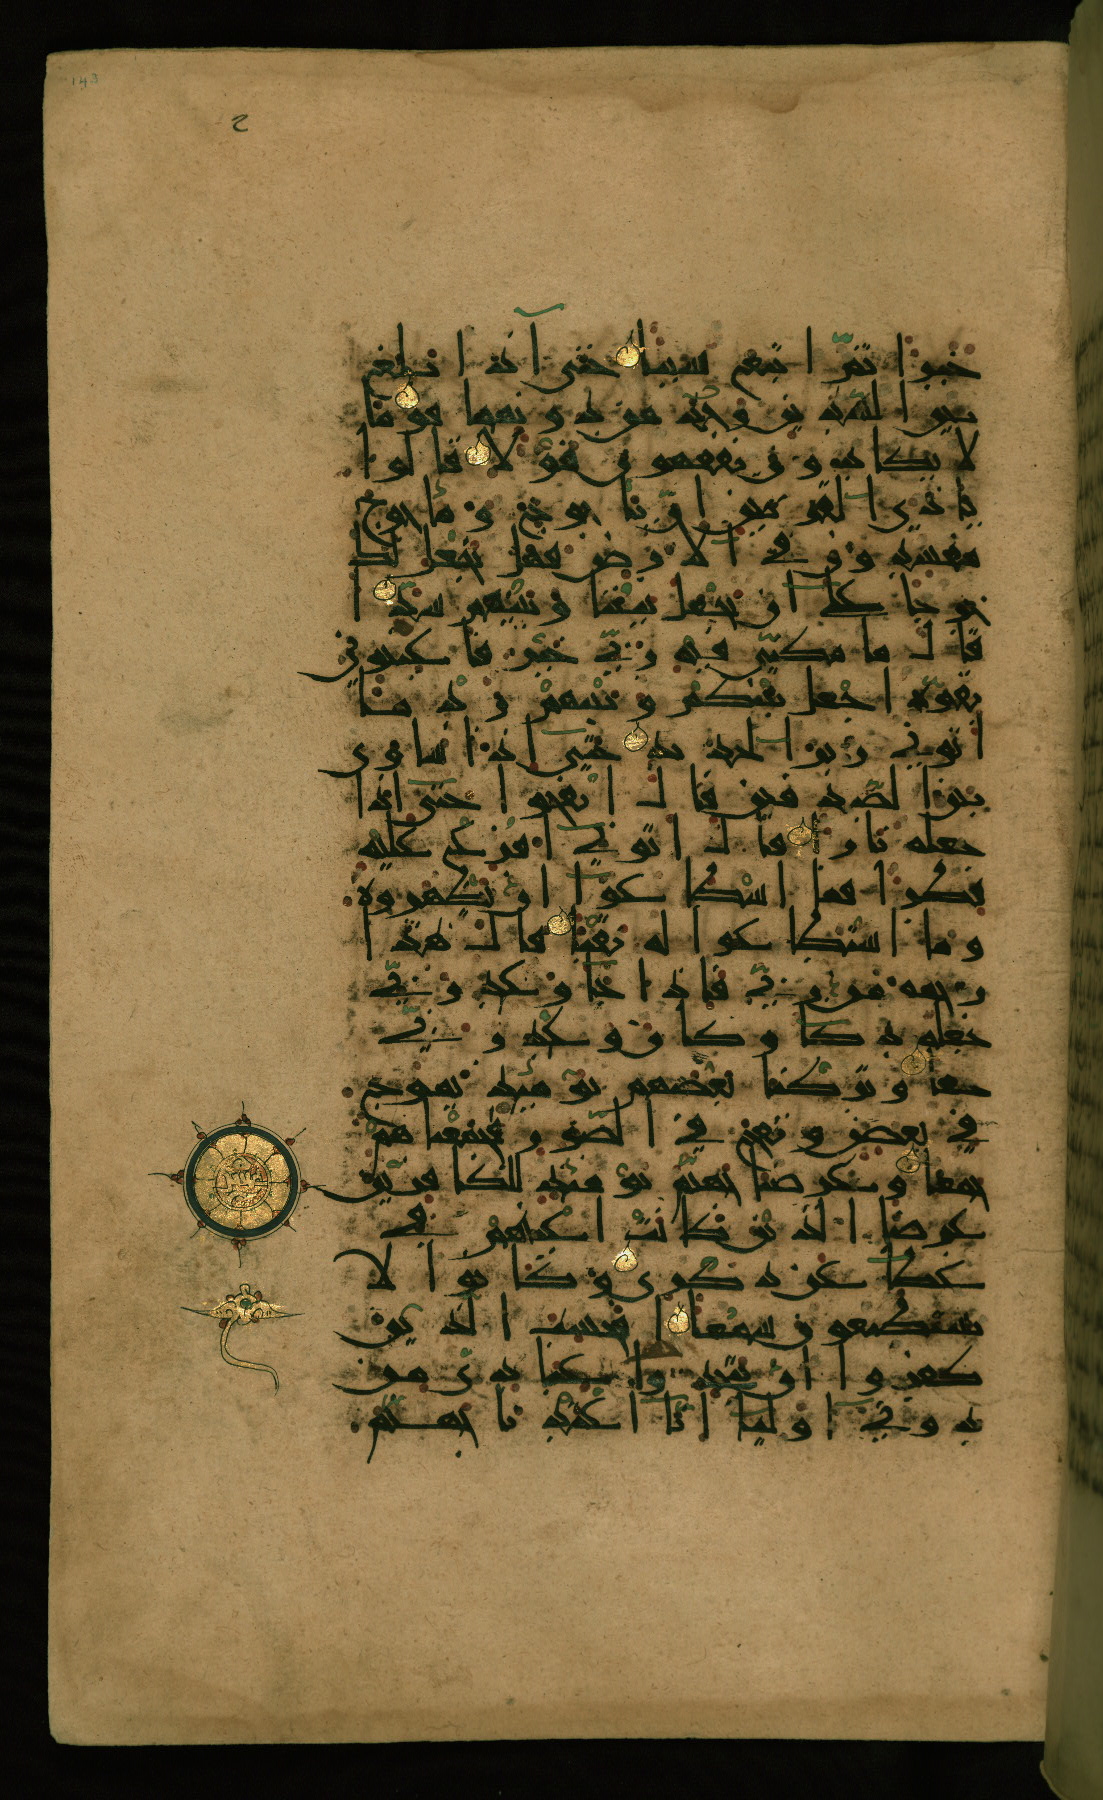 143
خبرا ثم اتبع سببا حتى اذا بلغ
بين السدين وجد من دونهما قوما
لا يكادون يفقهون قولا قالوا
يذا القرنين ان ياجوج وماجوج
مفسدون في الارض فهل نجعل لك
خرجا على ان تجعل بيننا وبينهم سدا
قال ما مكني فيه ربي خير فاعينوني
بقوة اجعل بينكم وبينهم ردما
اتوني زبر الحديد حتى اذا ساوى
بين الصدفين قال انفخوا حتى اذا
جعله نارا قال اتوني افرغ عليه
قطرا فما اسطاعوا ان يظهروه
وما استطاعوا له نقبا قال هذا
رحمة من ربي فاذا جا وعد ربي
جعله دكا وكان وعد ربي
حقا وتركنا بعضهم يومئذ يموج
في بعض ونفخ في الصور فجمعناهم
جمعا وعرضنا جهنم يومئذ للكافرين
عرضا الذين كانت اعينهم في
غطا عن ذكري وكانوا لا
يستطيعون سمعا افحسب الذين
كفروا ان يتخذوا عبادي من
دوني اوليا انا اعتدنا جهنم